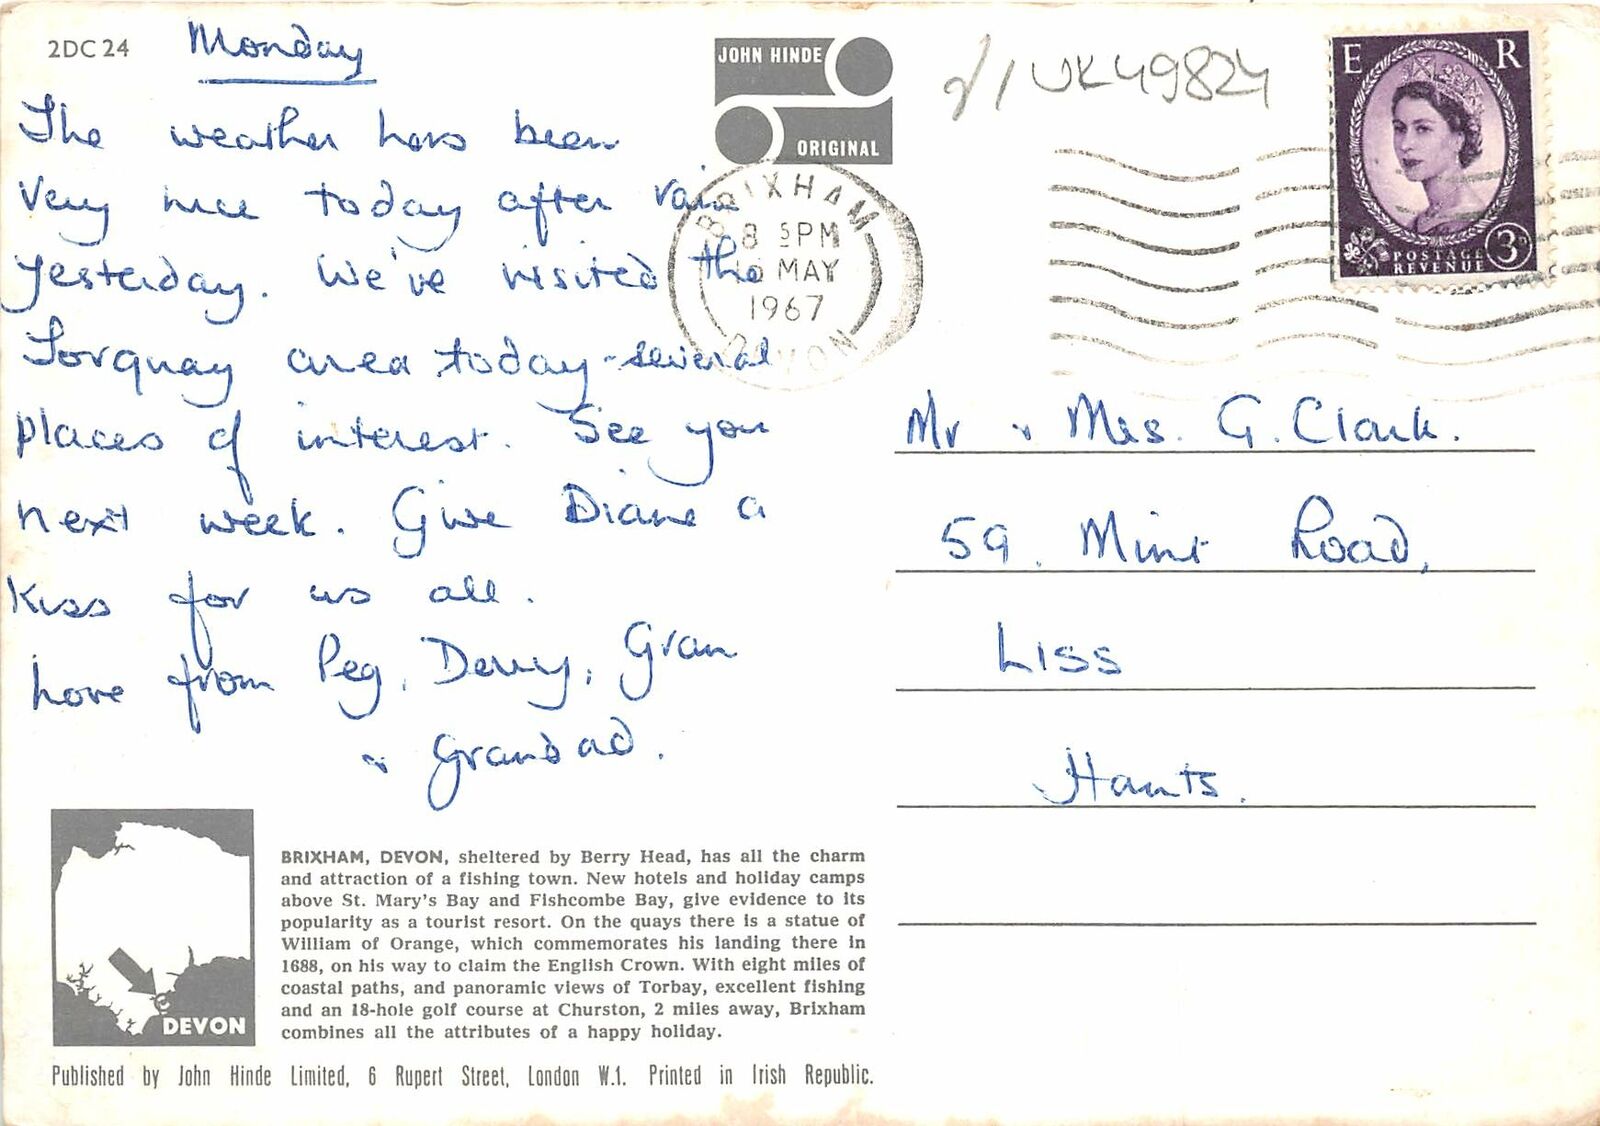 2DC24
Monday
The weather has been
very nice today after rain
yesterday. We've visited the
Torquay area today - several
places of interest. See you
next week. Give Diane a
kiss for us all.
Love from Peg, Derry, Gran
& Grandad.
JOHN HINDE
ORIGINAL
BRIXHAM
8 PM
MAY
1967
DEVON
UK49824
E R
POSTAGE
REVENUE
3D
Mr & Mrs. G. Clark.
59. Mint Road,
LISS
Hants.
DEVON
BRIXHAM, DEVON, sheltered by Berry Head, has all the charm
and attraction of a fishing town. New hotels and holiday camps
above St. Mary's Bay and Fishcombe Bay, give evidence to its
popularity as a tourist resort. On the quays there is a statue of
William of Orange, which commemorates his landing there in
1688, on his way to claim the English Crown. With eight miles of
coastal paths, and panoramic views of Torbay, excellent fishing
and an 18-hole golf course at Churston, 2 miles away, Brixham
combines all the attributes of a happy holiday.
Published by John Hinde Limited, 6 Rupert Street, London W.1. Printed in Irish Republic.